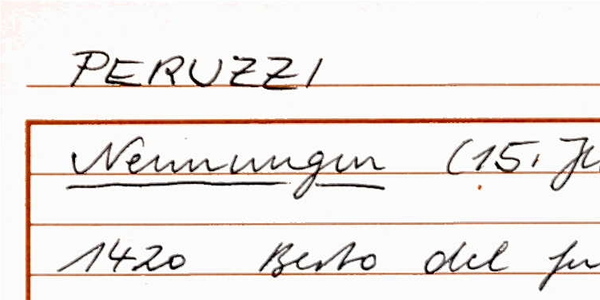 PERUZZI
Nennungen (15. J
1420 Berto del